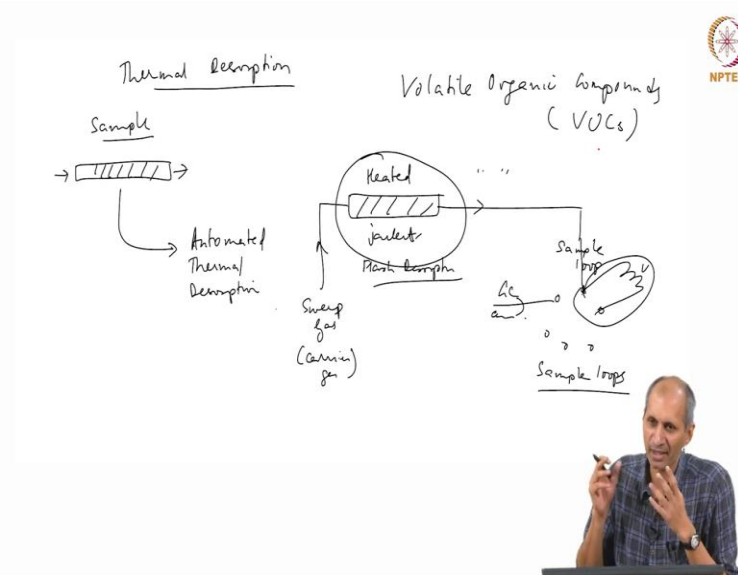 Thermal Desorption
Volatile Organic Compounds
(VOCs)
Sample
Automated
Thermal
Desorption
Heated
jackets
Flash Desorption
Sweep
gas
(carrier
gas)
Sample
loop
GC
Sample loops
NPTE